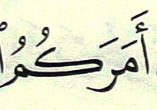 أَمَرَكُمُ